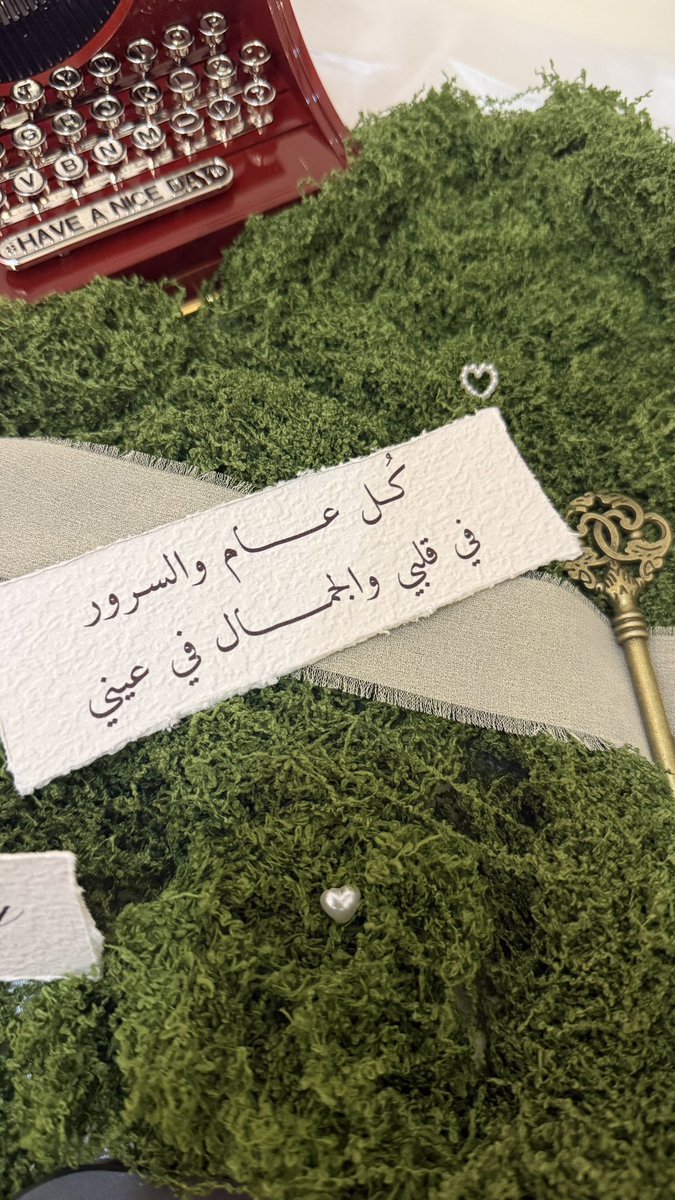 HAVE A NICE DAY
V B N M
كُل عـــام والسرور
في قلبي والجمـــال في عيني